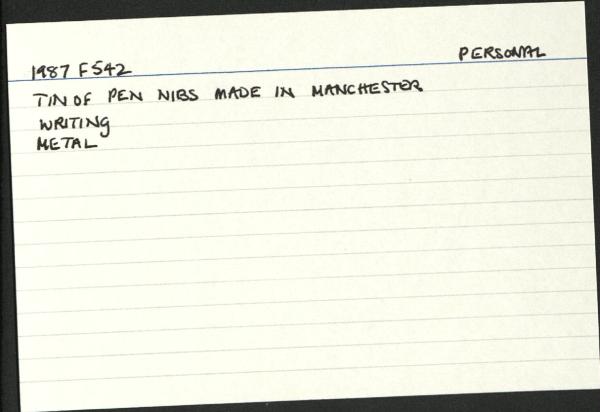 PERSONAL
1987 F542
TIN OF PEN NIBS MADE IN MANCHESTER
WRITING
METAL